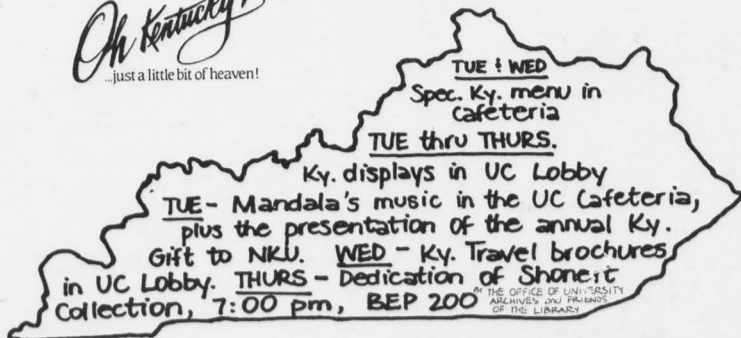 Oh Kentucky!
...just a little bit of heaven!
TUE & WED
Spec. Ky. menu in
cafeteria
TUE thru THURS.
Ky. displays in UC Lobby
TUE - Mandala's music in the UC Cafeteria,
plus the presentation of the annual Ky.
Gift to NKU. WED - Ky. Travel brochures
in UC Lobby. THURS - Dedication of
Collection, 7:00 pm, BEP 200 BY THE OFFICE OF UNIVERSITY
ARCHIVES and FRIENDS
OF THE LIBRARY